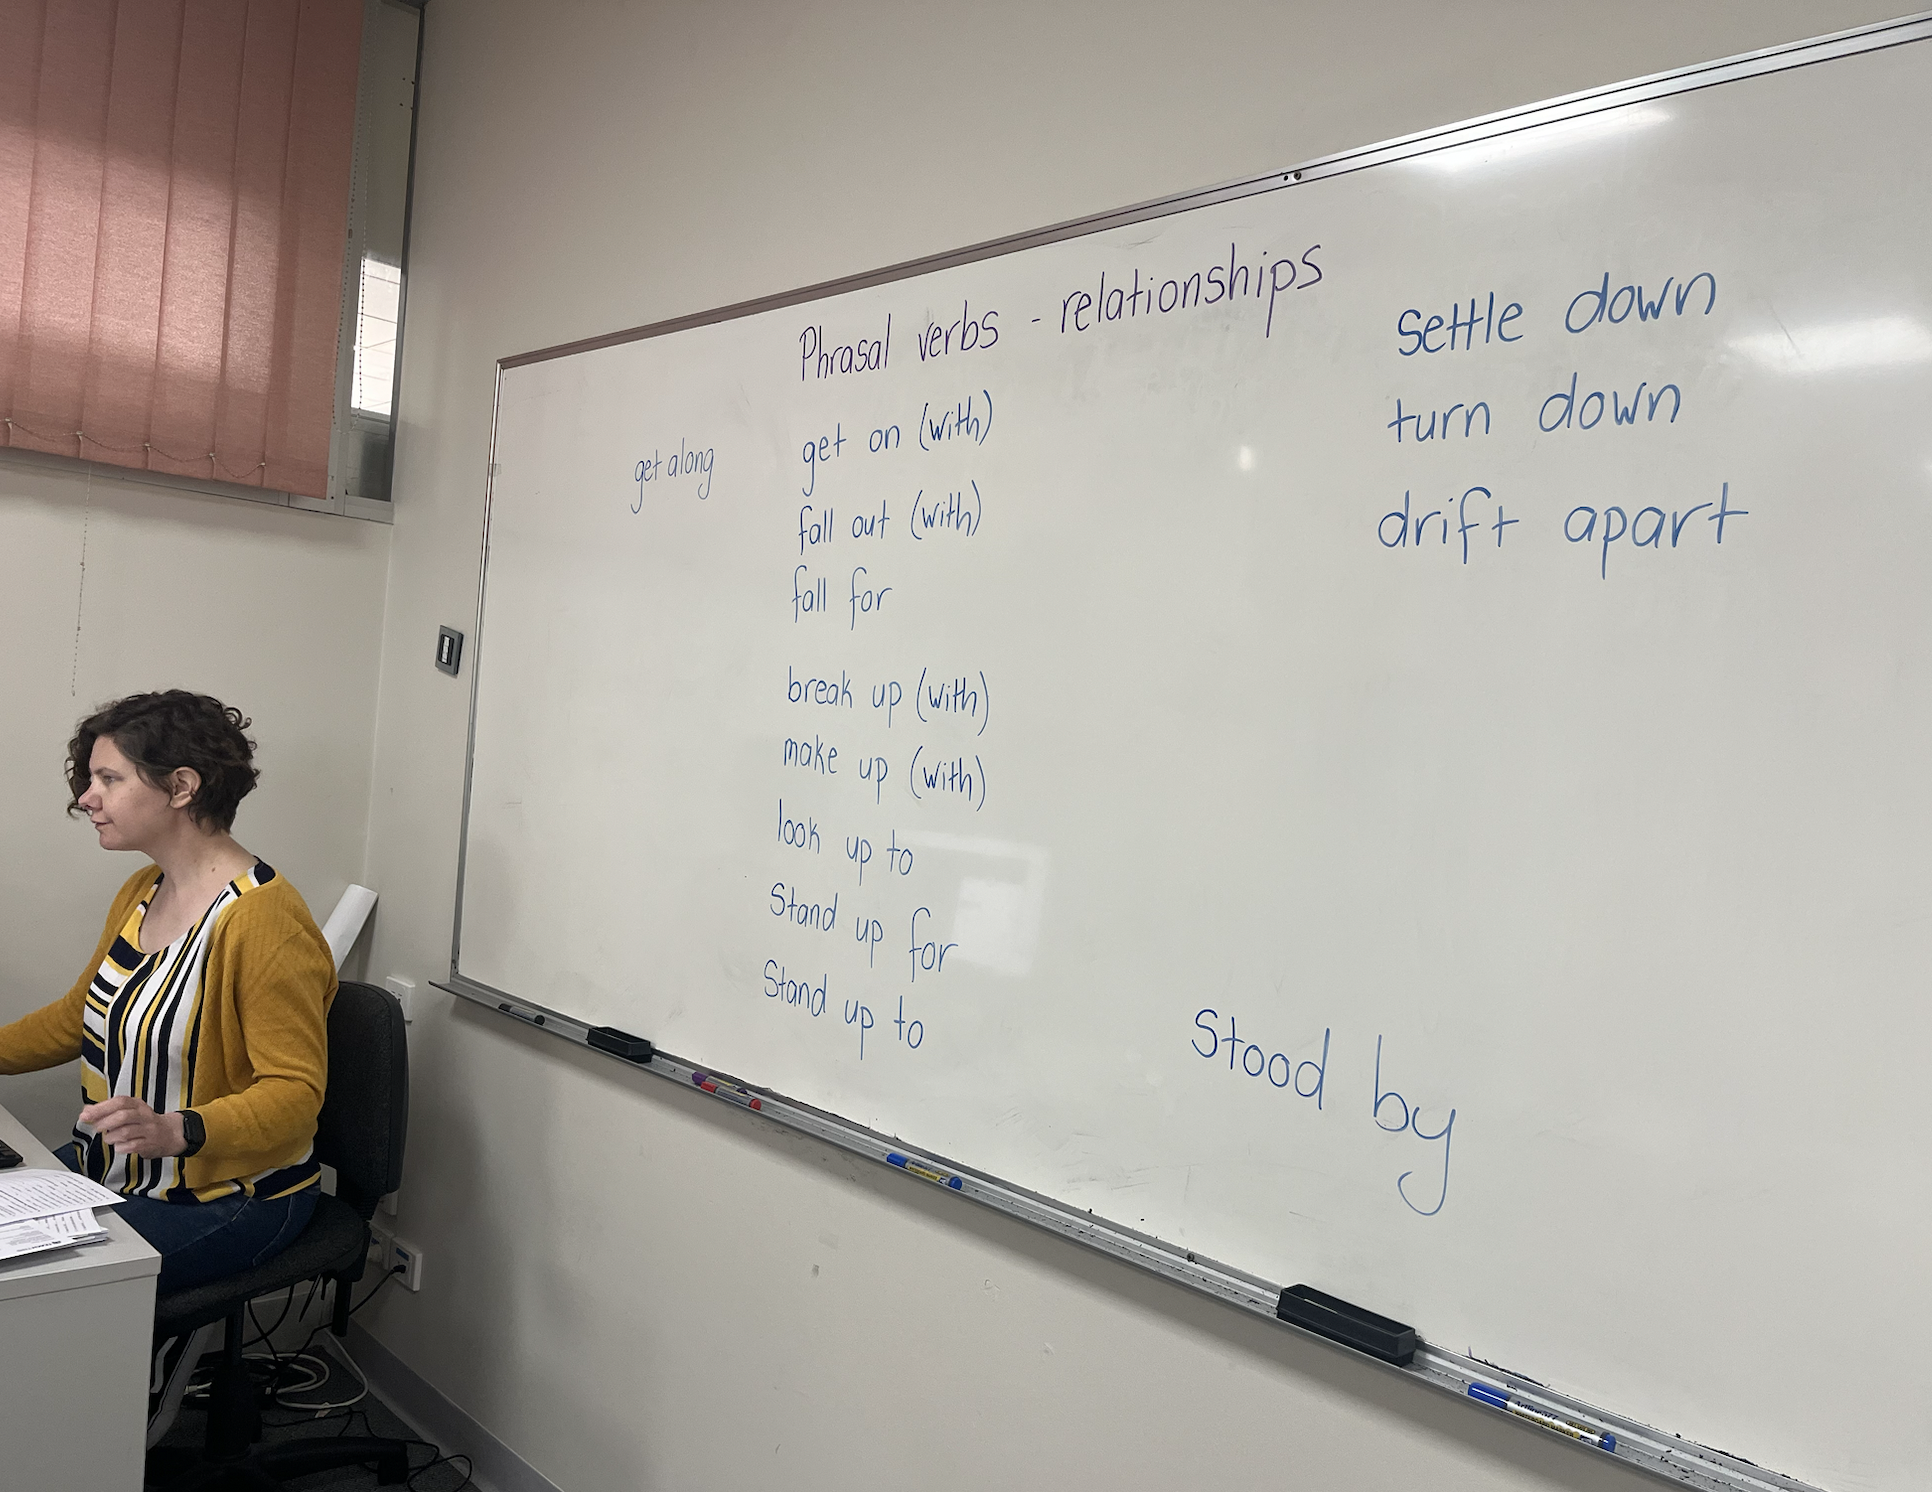 Phrasal verbs - relationships
get along
get on (with)
fall out (with)
fall for
break up (with)
make up (with)
look up to
Stand up for
Stand up to
Settle down
turn down
drift apart
Stood by